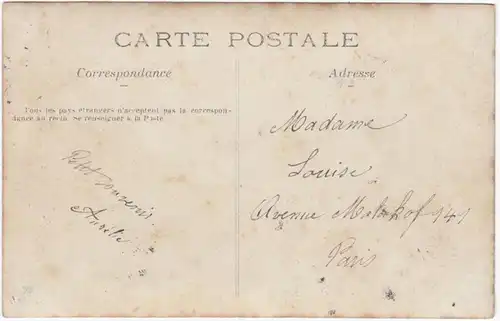 CARTE POSTALE
Correspondance
Adresse
Tous les pays étrangers n'acceptent pas la correspon-
dance au recto. Se renseigner à la Poste
Petit souvenir
Aurélie
Madame
Louise
Avenue Malakof 941
Paris